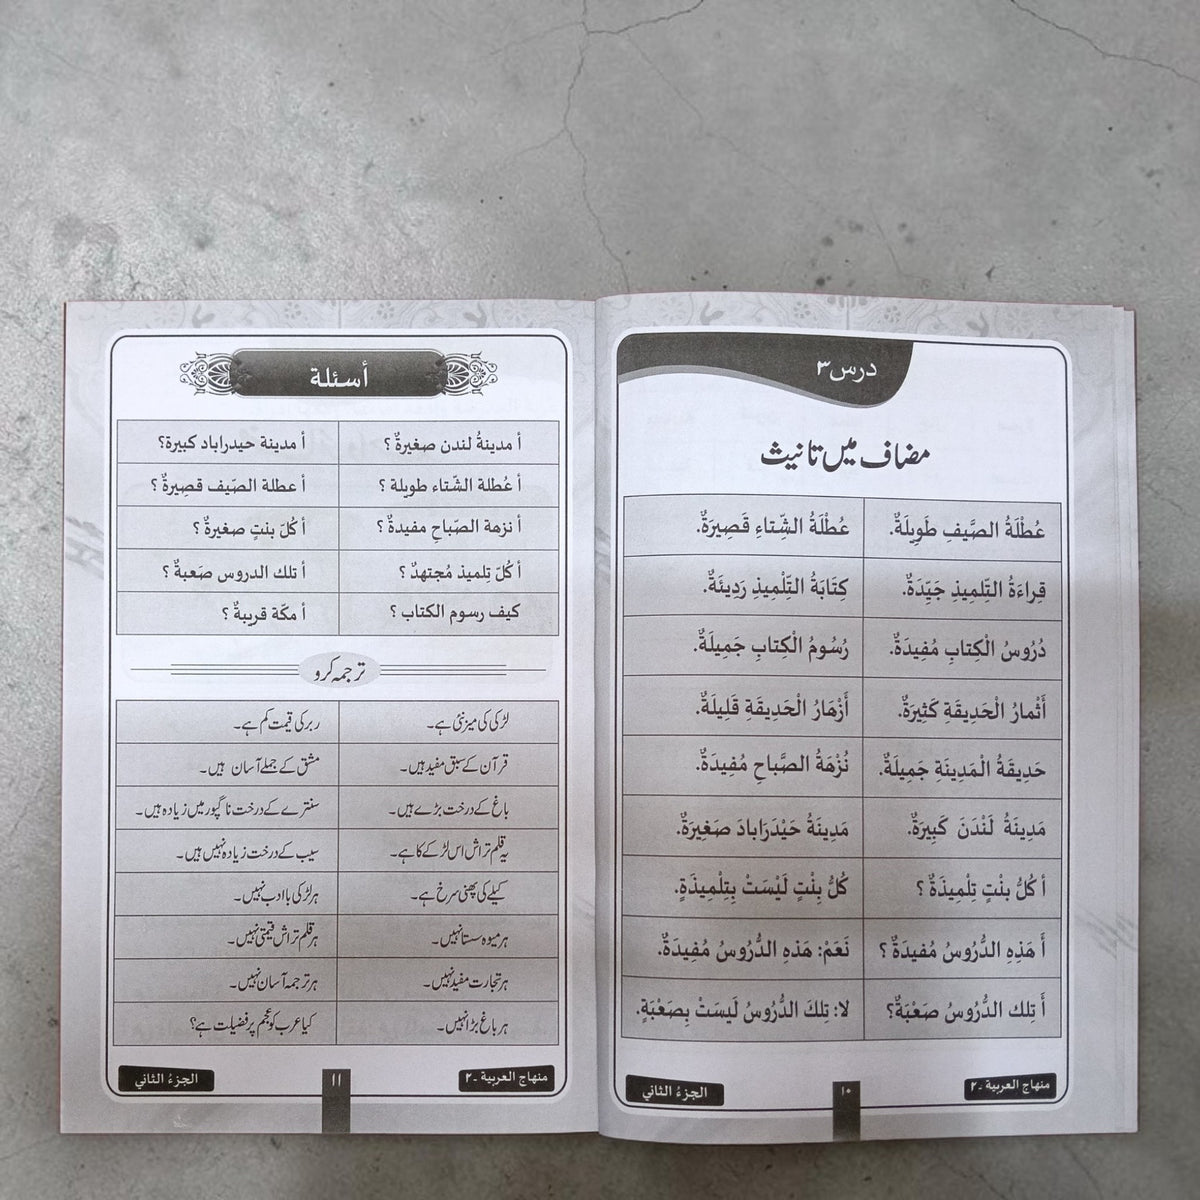 درس ۳
مضاف میں تانیث
عُطْلَةُ الصَّيفِ طَوِيلَةٌ. عُطْلَةُ الشِّتاءِ قَصِيرَةٌ.
قِراءَةُ التِّلمِيذِ جَيِّدَةٌ. كِتَابَةُ التِّلْمِيذِ رَدِيئَةٌ.
دُرُوسُ الْكِتابِ مُفِيدَةٌ. رُسُومُ الْكِتابِ جَمِيلَةٌ.
أَثْمارُ الْحَدِيقَةِ كَثِيرَةٌ. أَزْهَارُ الْحَدِيقَةِ قَلِيلَةٌ.
حَدِيقَةُ الْمَدِينَةِ جَمِيلَةٌ. نُزْهَةُ الصَّباحِ مُفِيدَةٌ.
مَدِينَةُ لَنْدَنَ كَبِيرَةٌ. مَدِينَةُ حَيْدَرَابادَ صَغِيرَةٌ.
أ كُلُّ بنْتٍ تِلْمِيذَةٌ ؟ كُلُّ بِنْتٍ لَيْسَتْ بِتِلْمِيذَةٍ.
أَ هَذِهِ الدُّرُوسُ مُفيدَةٌ ؟ نَعَمْ: هَذِهِ الدُّرُوسُ مُفِيدَةٌ.
أَ تِلك الدُّرُوسُ صَعْبَةٌ؟ لا: تِلكَ الدُّرُوسُ لَيسَتْ بِصَعْبَةٍ.
منهاج العربية ـ ۲ ۱۰ الجزءُ الثاني
أسئلة
أ مدينةُ لندن صغيرةٌ ؟ أ مدينة حيدراباد كبيرة؟
أ عُطلة الشّتاء طويلة ؟ أ عطلة الصّيف قصِيرةٌ ؟
أ نزهة الصّباحِ مفيدةٌ ؟ أ كُلّ بنتٍ صغيرةٌ ؟
أ كُلّ تلميذ مُجتهدٌ ؟ أ تلك الدروس صَعبةٌ ؟
كيف رسوم الكتاب ؟ أ مكّة قريبةٌ ؟
ترجمہ کرو
لڑکی کی میز نئی ہے۔ ربر کی قیمت کم ہے۔
قرآن کے سبق مفید ہیں۔ مشق کے جملے آسان ہیں۔
باغ کے درخت بڑے ہیں۔ سنترے کے درخت ناگپور میں زیادہ ہیں۔
یہ قلم تراش اس لڑکے کا ہے۔ سیب کے درخت زیادہ نہیں ہیں۔
کیلے کی پھنی سرخ ہے۔ ہر لڑکی باادب نہیں۔
ہر میوہ سستا نہیں۔ ہر قلم تراش قیمتی نہیں۔
ہر تجارت مفید نہیں۔ ہر ترجمہ آسان نہیں۔
ہر باغ بڑا نہیں۔ کیا عرب کو عجم پر فضیلت ہے؟
منهاج العربية ـ ۲ ۱۱ الجزءُ الثاني